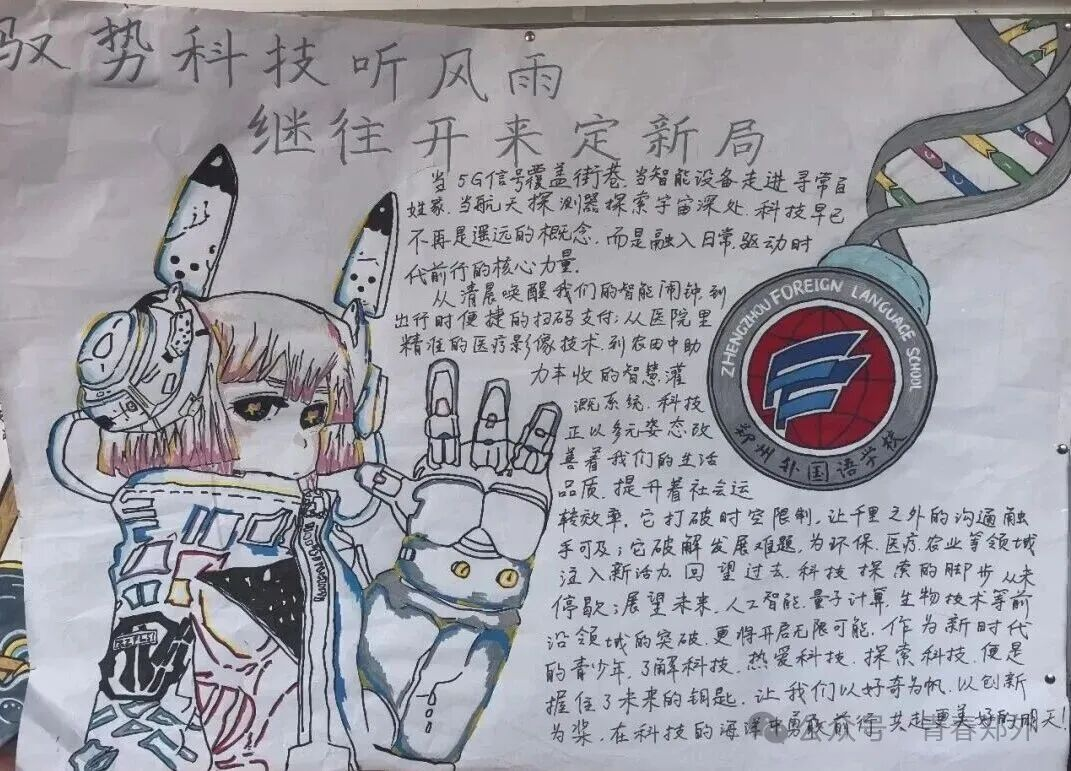 驭势科技听风雨
继往开来定新局
当5G信号覆盖街巷.当智能设备走进寻常百
姓家.当航天探测器探索宇宙深处.科技早已
不再是遥远的概念.而是融入日常.驱动时
代前行的核心力量.
从清晨唤醒我们的智能闹钟到
出行时便捷的扫码支付;从医院里
精准的医疗影像技术.到农田中助
力丰收的智慧灌
溉系统.科技
正以多元姿态改
善着我们的生活
品质.提升着社会运
转效率.它打破时空限制,让千里之外的沟通触
手可及;它破解发展难题,为环保.医疗.农业等领域
注入新活力.回望过去.科技探索的脚步从未
停歇;展望未来.人工智能.量子计算.生物技术等前
沿领域的突破.更将开启无限可能.作为新时代
的青少年.了解科技.热爱科技.探索科技.便是
握住了未来的钥匙.让我们以好奇为帆.以创新
为桨.在科技的海洋中勇敢前行.共赴更美好的明天!
ZHENGZHOU FOREIGN LANGUAGE SCHOOL
郑州外国语学校
公众号 青春郑外